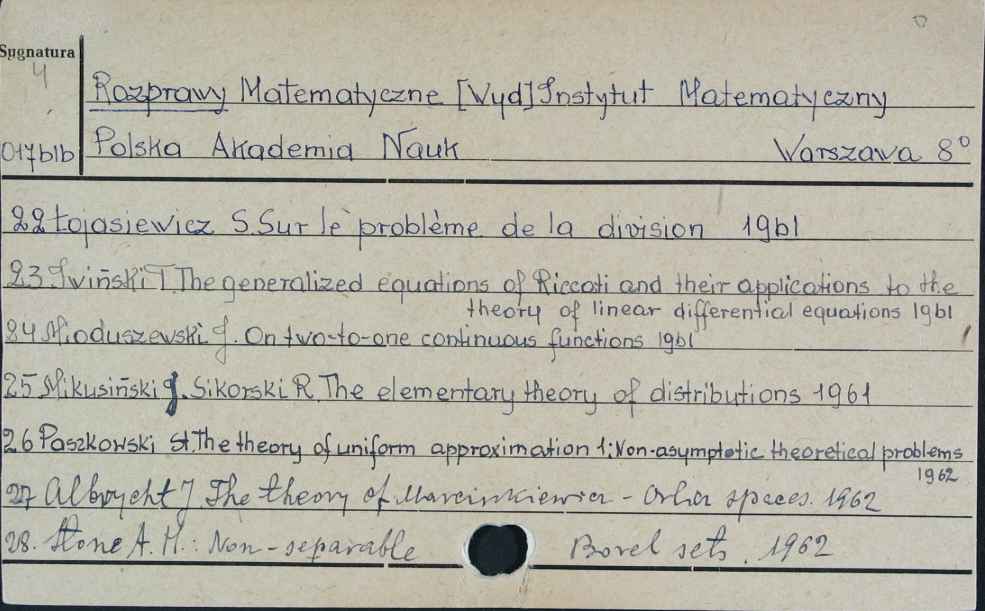 Sygnatura
4
Rozprawy Matematyczne [Wyd] Instytut Matematyczny
017b1b Polska Akademia Nauk Warszawa 8°
22 Łojasiewicz S. Sur le problème de la division 1961
23 Iwiński T. The generalized equations of Riccati and their applications to the
theory of linear differential equations 1961
24 Mioduszewski J. On two-to-one continuous functions 1961
25 Mikusiński J. Sikorski R. The elementary theory of distributions 1961
26 Paszkowski St. The theory of uniform approximation 1: Non-asymptotic theoretical problems
1962
27 Albrycht J. The theory of Marcinkiewicz - Orlicz spaces. 1962
28. Stone A. H.: Non-separable Borel sets. 1962